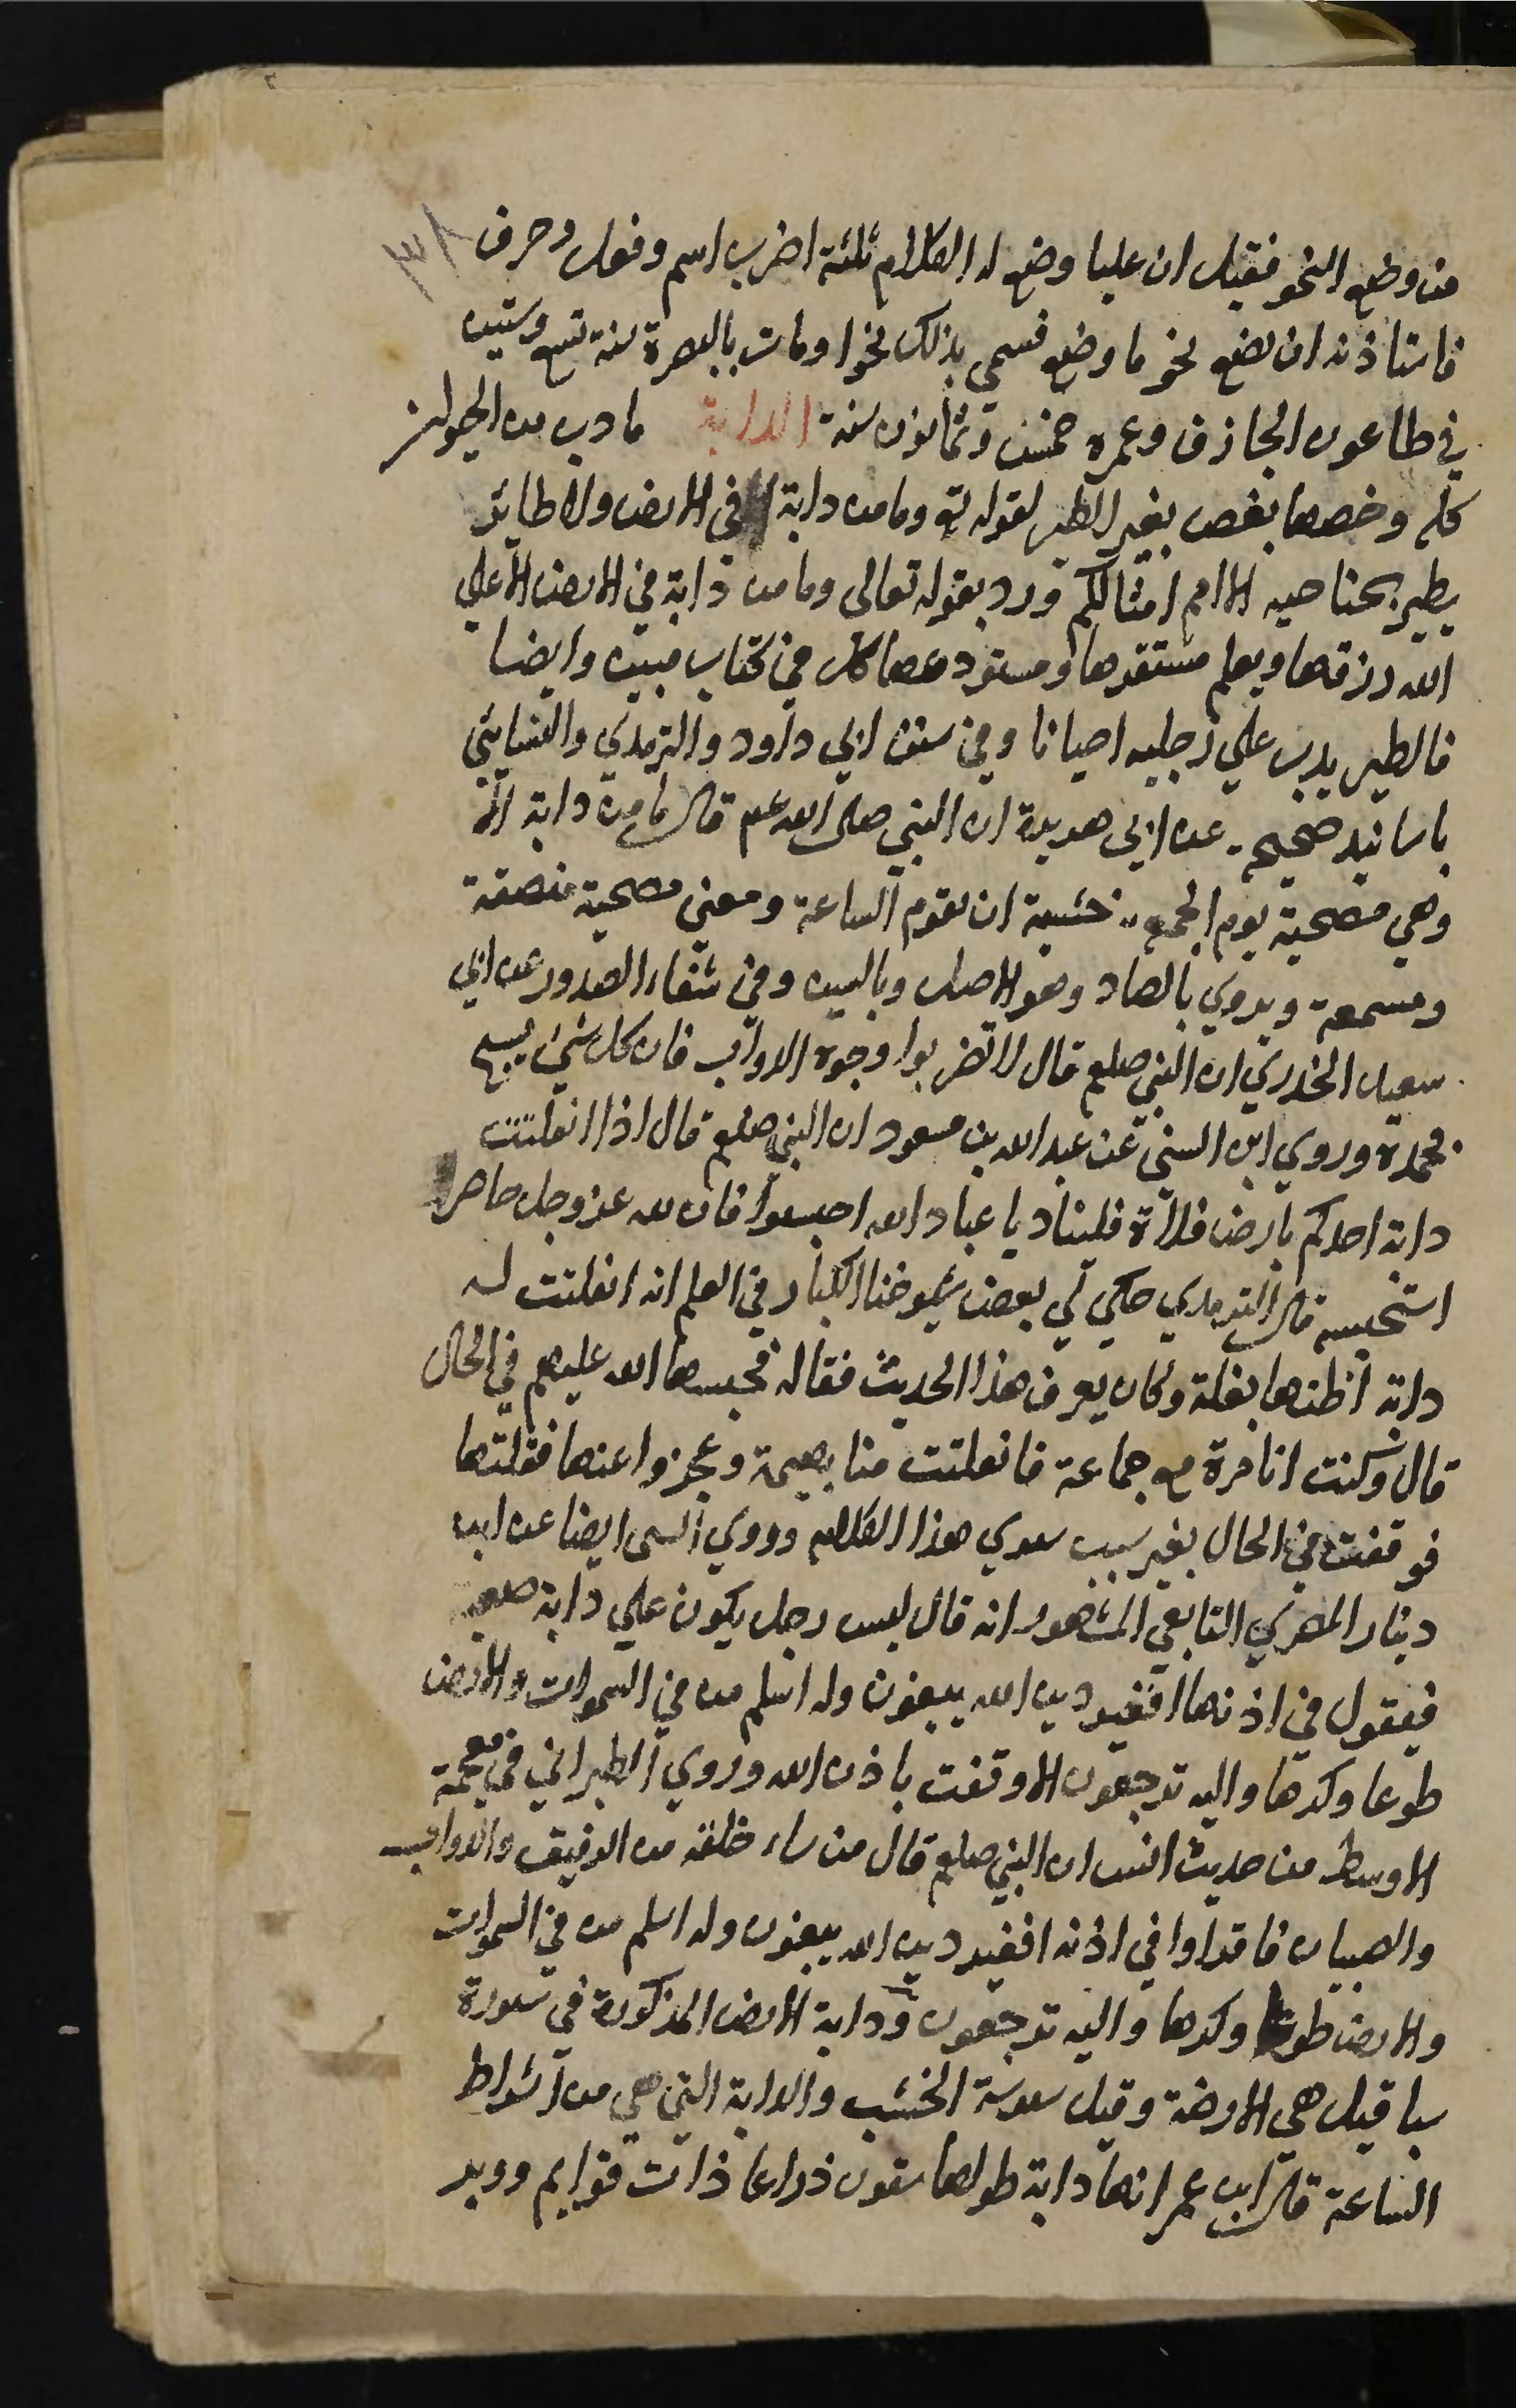 ٣٨
من وضع النحو فقيل ان عليا وضع له الكلام ثلثة اضرب اسم وفعل وحرف
فاستاذنه ان يضع نحو ما وضع فسمي بذلك نحوا ومات بالبصرة سنة تسع وستين
في طاعون الجازف وعمره خمس وثمانون سنة الدابة ما دب من الحيوان
كله وخصها بعض بغير الطير لقوله تع وما من دابة في الارض ولا طائر
يطير بجناحيه الا امم امثالكم ورد بقوله تعالى وما من دابة في الارض الا علي
الله رزقها ويعلم مستقرها ومستودعها كل في كتاب مبين وايضا
فالطير يدب علي رجليه احيانا وفي سنن ابي داود والترمذي والنسايئي
باسانيد صحيحه عن ابي هريرة ان النبي صلى الله عم قال ما من دابة الا
وهي مصحية يوم الجمعه خشية ان تقوم الساعة ومعني مصحية منصقة
ومسمعة ويروي بالصاد وهو الاصل وبالسين وفي شفاء الصدور عن ابي
سعيد الخدري ان النبي صلعم قال لا تضربوا وجوه الدواب فان كل شيئ يسبح
بحمده وروي ابن السني عن عبد الله بن مسعود ان النبي صلعم قال اذا انفلتت
دابة احدكم بارض فلاة فليناد يا عباد الله احبسوا فان لله عز وجل حاصرا
استحبسه قال الترمدي حكي لي بعض شيوخنا الكبار في العلم انه انفلتت له
دابة اظنها بغلة وكان يعرف هذا الحديث فقاله فحبسها الله عليهم في الحال
قال وكنت انا مرة مع جماعة فانفلتت منا بهيمة وعجزوا عنها فقلتها
فوقفت في الحال بغير سبب سوي هذا الكلام وروي السى ايضا عن ابن
دينار المصري التابعي المشهور انه قال ليس رجل يكون علي دابة صعبه
فيقول في اذنها افغير دين الله يبغون وله اسلم من في السموات والارض
طوعا وكرها واليه ترجعون الا وقفت باذن الله وروي الطبراني في معجمة
الاوسط من حديث انس ان النبي صلعم قال من ساء خلقه من الرقيق والدواب
والصبيان فاقراوا في اذنه افغير دين الله يبغون وله اسلم من في السموات
والارض طوعا وكرها واليه ترجعون ودابة الارض المذكورة في سورة
سبا قيل هي الارضة وقيل سوسة الخشب والدابة التي هي من اشراط
الساعة قال ابن عمر انها دابة طولها ستون ذراعا ذات قوايم ووبر